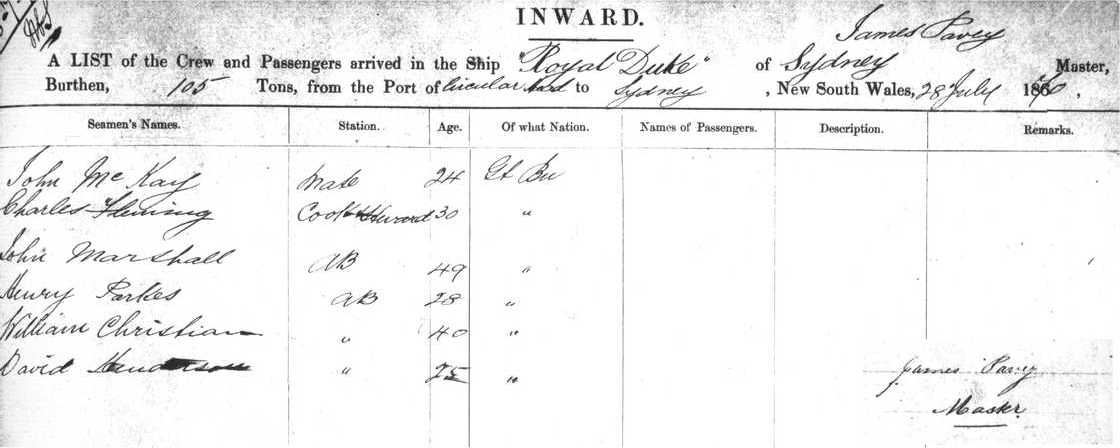 INWARD.
James Pavey
A LIST of the Crew and Passengers arrived in the Ship "Royal Duke" of Sydney Master,
Burthen, 105 Tons, from the Port of Circular to Sydney, New South Wales, 28 July 18
Seamen's Names. Station. Age. Of what Nation. Names of Passengers. Description. Remarks.
John McKay Mate 24 Gt Bn
Charles Fleming Cook Steward 30 "
John Marshall AB 49 "
Henry Parkes AB 28 "
William Christian " 40 "
David Henderson " 25 "
James Pavey
Master